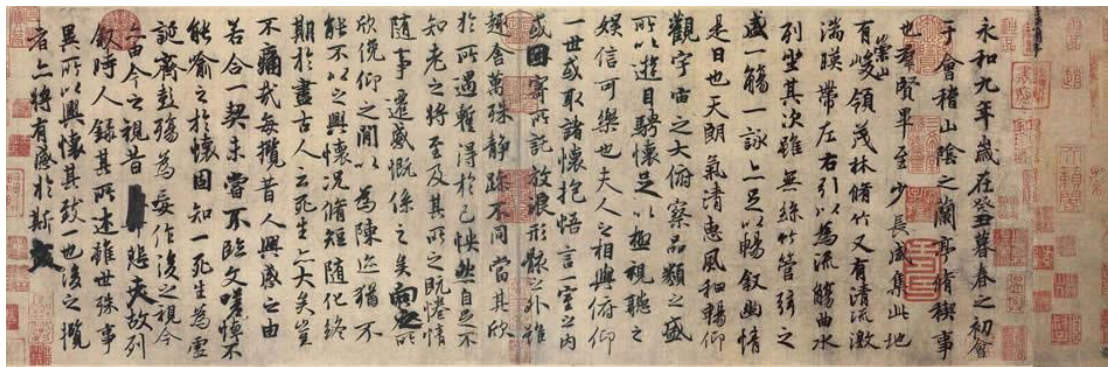 永和九年歲在癸丑暮春之初會
于會稽山陰之蘭亭脩禊事
也羣賢畢至少長咸集此地
有崇山峻領茂林脩竹又有清流激
湍暎帶左右引以為流觴曲水
列坐其次雖無絲竹管弦之
盛一觴一詠亦足以暢敘幽情
是日也天朗氣清惠風和暢仰
觀宇宙之大俯察品類之盛
所以遊目騁懷足以極視聽之
娛信可樂也夫人之相與俯仰
一世或取諸懷抱悟言一室之內
或因寄所託放浪形骸之外雖
趣舍萬殊静躁不同當其欣
於所遇暫得於己怏然自足不
知老之將至及其所之既惓情
隨事遷感慨係之矣向之所
欣俛仰之閒以為陳迹猶不
能不以之興懷況脩短隨化終
期於盡古人云死生亦大矣豈
不痛哉每攬昔人興感之由
若合一契未嘗不臨文嗟悼不
能喻之於懷固知一死生為虛
誕齊彭殤為妄作後之視今
亦由今之視昔悲夫故列
敘時人錄其所述雖世殊事
異所以興懷其致一也後之攬
者亦將有感於斯文